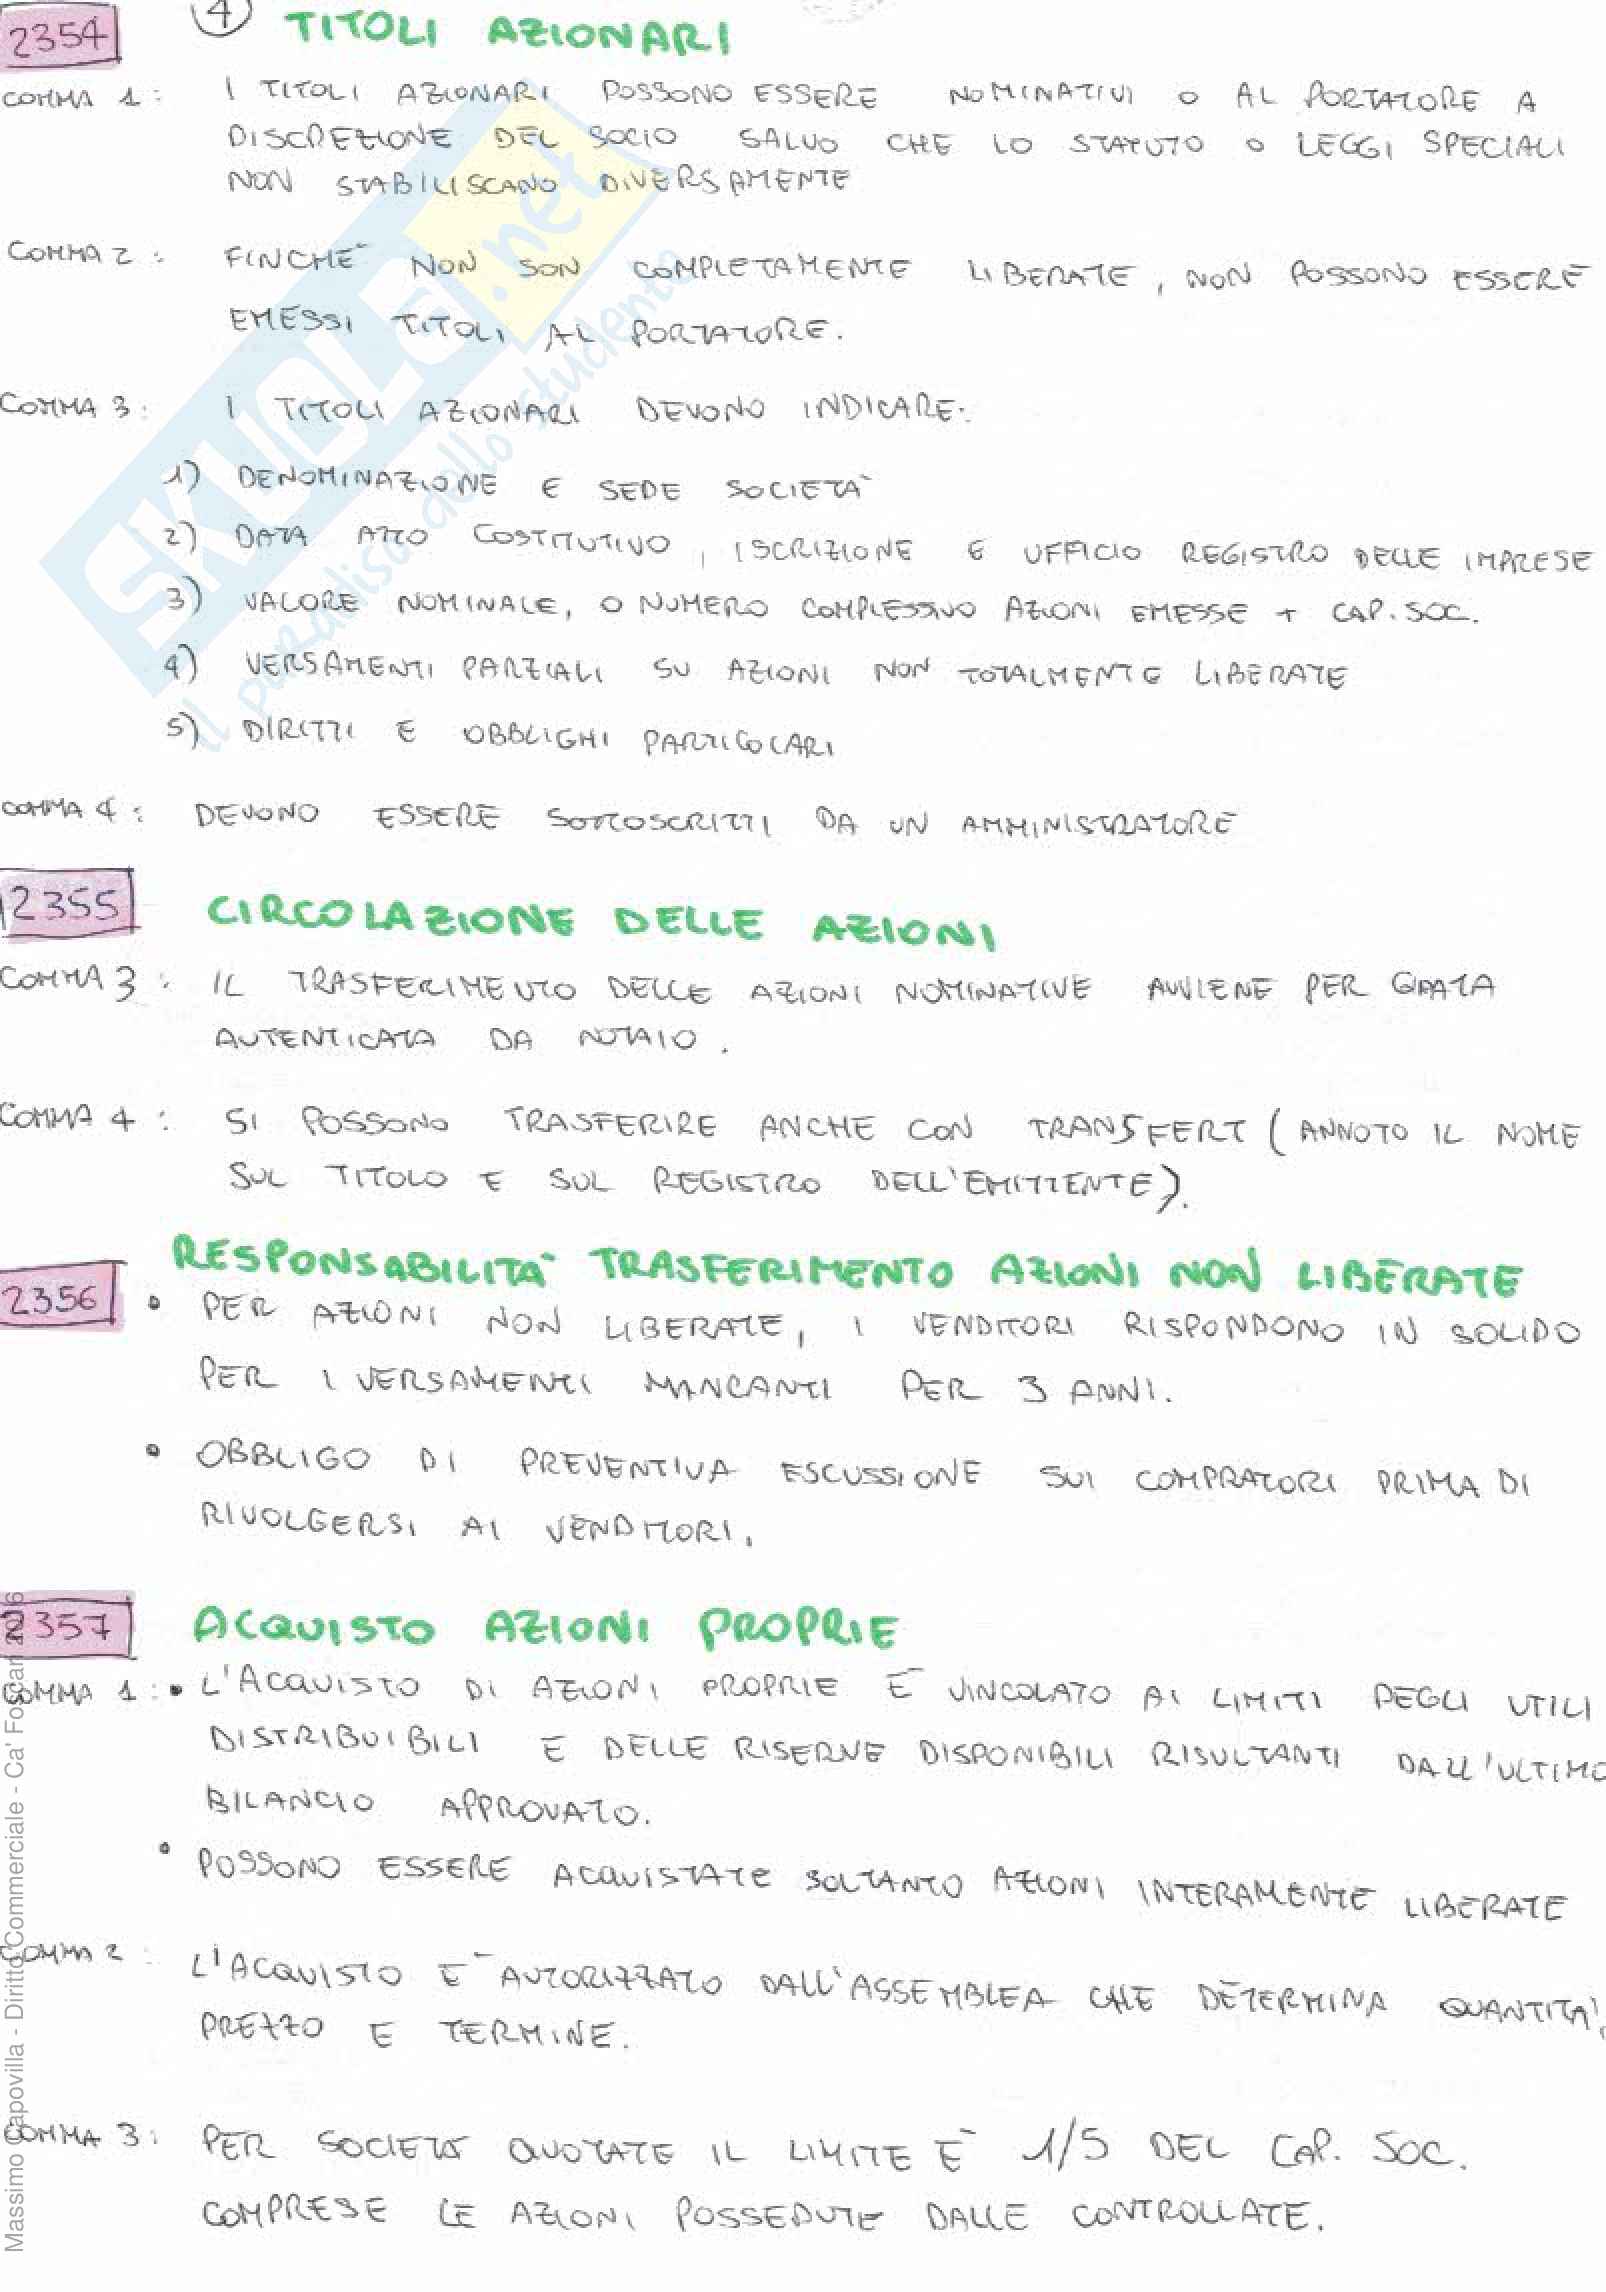 4 TITOLI AZIONARI
2354
COMMA 1: I TITOLI AZIONARI POSSONO ESSERE NOMINATIVI O AL PORTATORE A
DISCREZIONE DEL SOCIO SALVO CHE LO STATUTO O LEGGI SPECIALI
NON STABILISCANO DIVERSAMENTE
COMMA 2: FINCHE' NON SON COMPLETAMENTE LIBERATE, NON POSSONO ESSERE
EMESSI TITOLI AL PORTATORE.
COMMA 3: I TITOLI AZIONARI DEVONO INDICARE:
1) DENOMINAZIONE E SEDE SOCIETA'
2) DATA ATTO COSTITUTIVO, ISCRIZIONE E UFFICIO REGISTRO DELLE IMPRESE
3) VALORE NOMINALE, O NUMERO COMPLESSIVO AZIONI EMESSE + CAP. SOC.
4) VERSAMENTI PARZIALI SU AZIONI NON TOTALMENTE LIBERATE
5) DIRITTI E OBBLIGHI PARTICOLARI
COMMA 4: DEVONO ESSERE SOTTOSCRITTI DA UN AMMINISTRATORE
2355 CIRCOLAZIONE DELLE AZIONI
COMMA 3: IL TRASFERIMENTO DELLE AZIONI NOMINATIVE AVVIENE PER GIRATA
AUTENTICATA DA NOTAIO.
COMMA 4: SI POSSONO TRASFERIRE ANCHE CON TRANSFERT (ANNOTO IL NOME
SUL TITOLO E SUL REGISTRO DELL'EMITTENTE).
RESPONSABILITA' TRASFERIMENTO AZIONI NON LIBERATE
2356
• PER AZIONI NON LIBERATE, I VENDITORI RISPONDONO IN SOLIDO
PER I VERSAMENTI MANCANTI PER 3 ANNI.
• OBBLIGO DI PREVENTIVA ESCUSSIONE SUI COMPRATORI PRIMA DI
RIVOLGERSI AI VENDITORI.
2357 ACQUISTO AZIONI PROPRIE
COMMA 1: • L'ACQUISTO DI AZIONI PROPRIE E' VINCOLATO AI LIMITI DEGLI UTILI
DISTRIBUIBILI E DELLE RISERVE DISPONIBILI RISULTANTI DALL'ULTIMO
BILANCIO APPROVATO.
• POSSONO ESSERE ACQUISTATE SOLTANTO AZIONI INTERAMENTE LIBERATE
COMMA 2: L'ACQUISTO E' AUTORIZZATO DALL'ASSEMBLEA CHE DETERMINA QUANTITA',
PREZZO E TERMINE.
COMMA 3: PER SOCIETA' QUOTATE IL LIMITE E' 1/5 DEL CAP. SOC.
COMPRESE LE AZIONI POSSEDUTE DALLE CONTROLLATE.
SKUOLA.net
il paradiso dello studente
Massimo Capovilla - Diritto Commerciale - Ca' Foscari